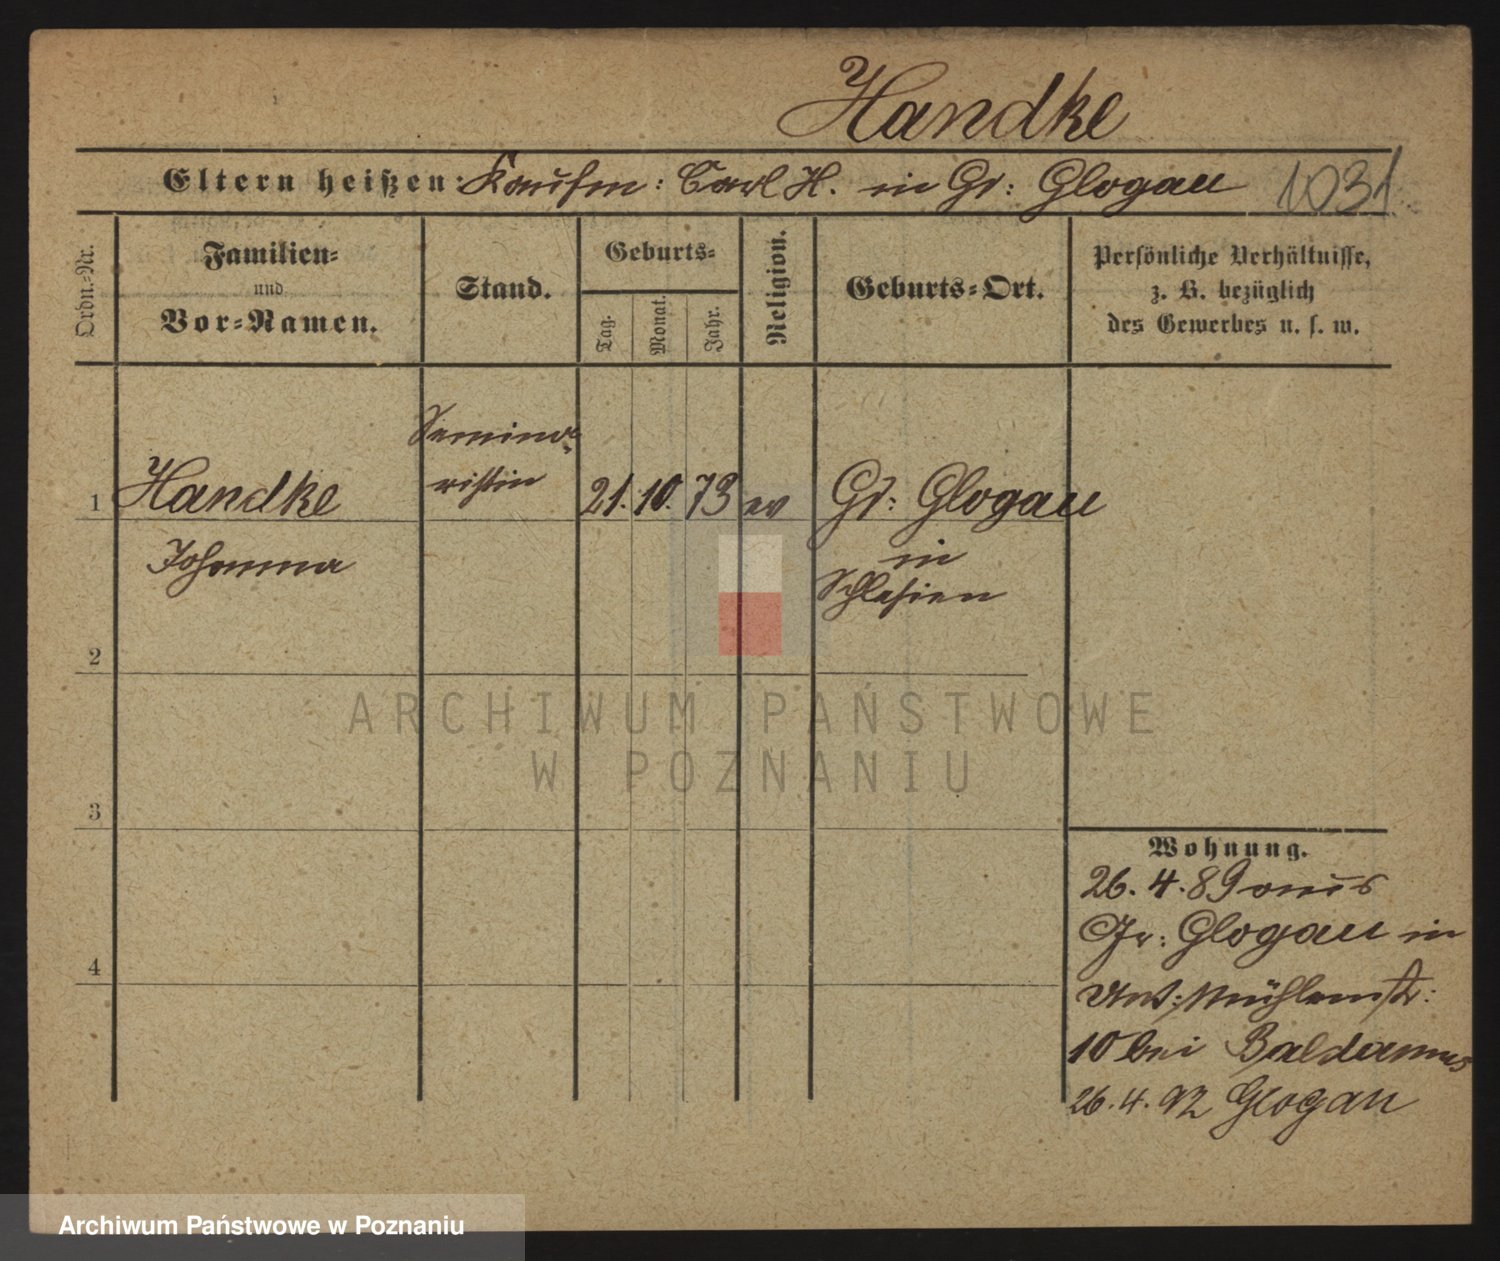 Handke
Eltern heißen: Kaufm: Carl H. in Gr: Glogau 1031
Ordn.-Nr.
Familien-
und
Vor-Namen.
Stand.
Geburts-
Tag.
Monat.
Jahr.
Religion.
Geburts-Ort.
Persönliche Verhältnisse,
z. B. bezüglich
des Gewerbes u. s. w.
Semina-
ristin
1 Handke 21. 10. 73 ev Gr: Glogau
Johanna
in
Schlesien
2
3
4
Wohnung.
26. 4. 89 aus
Gr: Glogau in
Unt: Mühlenstr:
10 bei Baldamus
26. 4. 92 Glogau
ARCHIWUM PAŃSTWOWE
W POZNANIU
Archiwum Państwowe w Poznaniu